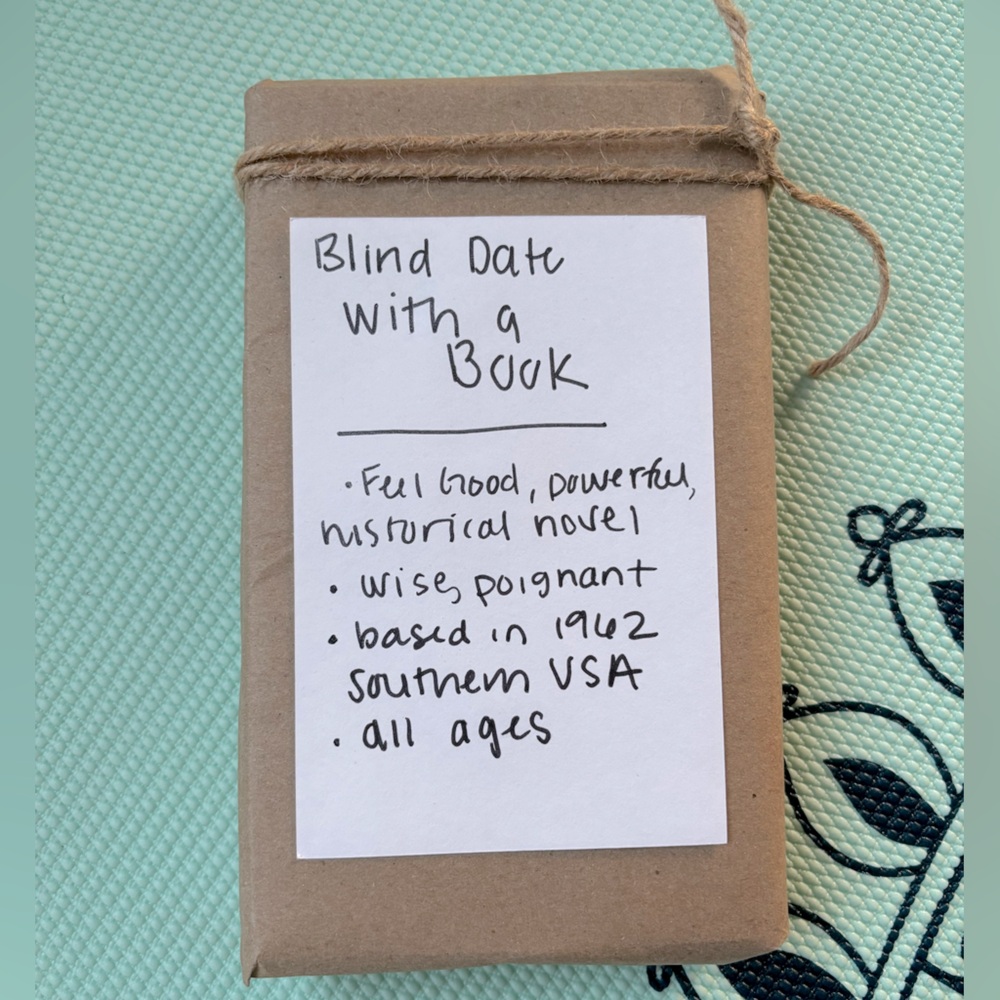 Blind Date
with a
Book
• Feel Good, powerful,
historical novel
• wise, poignant
• based in 1962
southern USA
• all ages